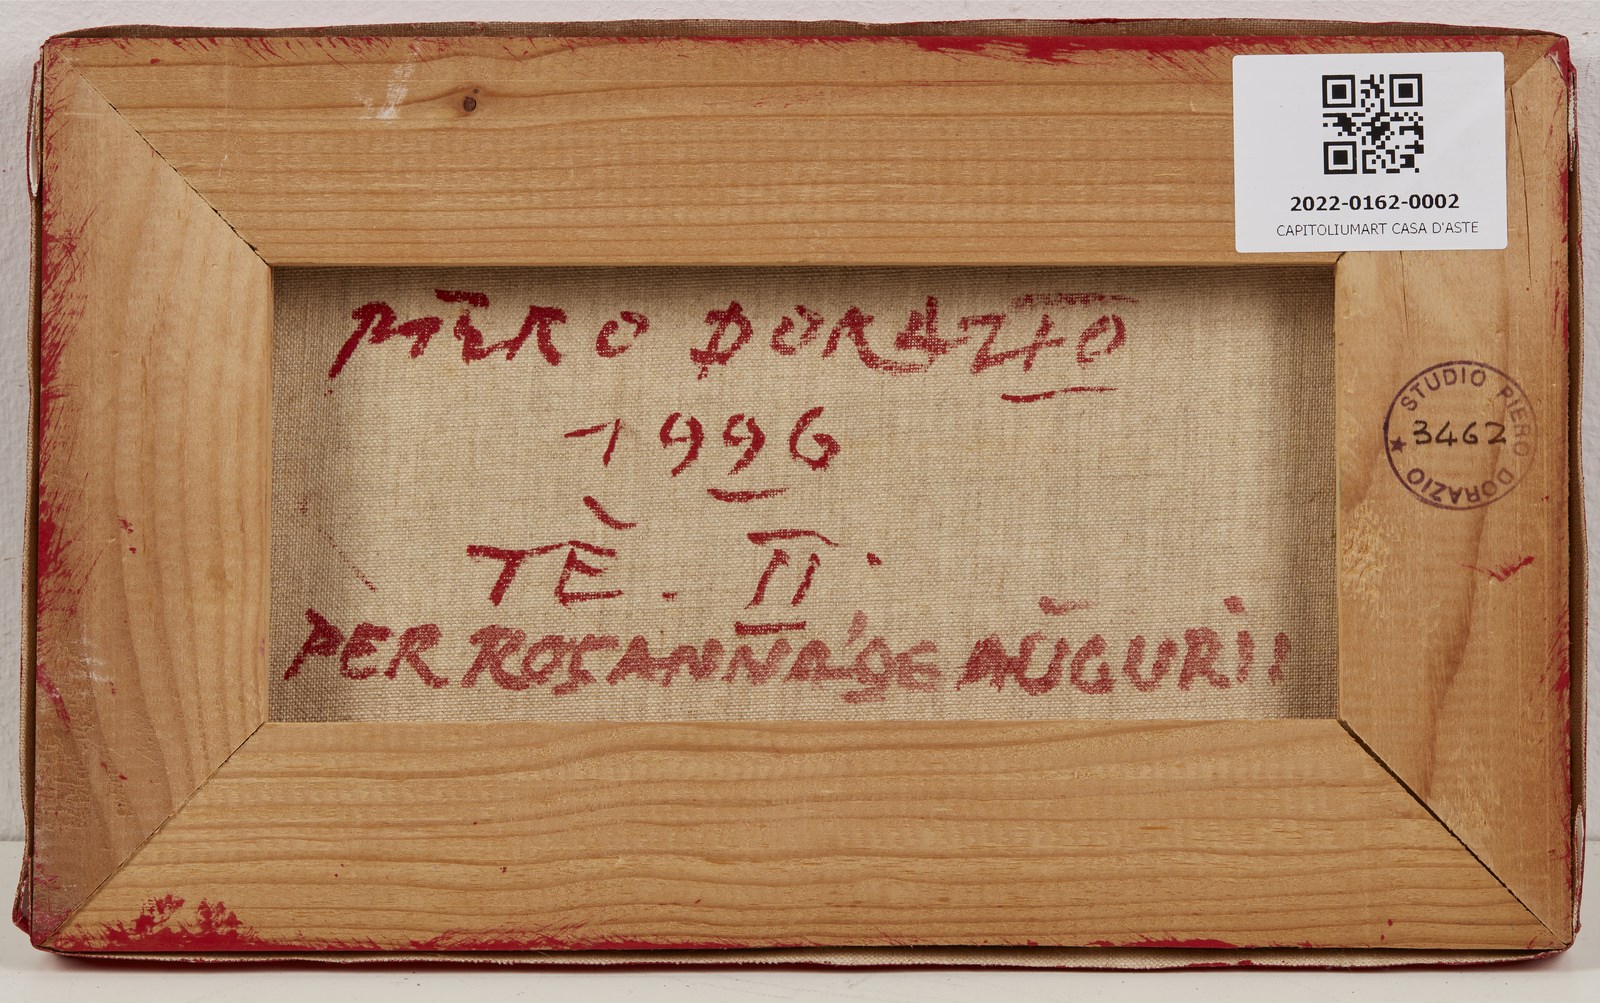 2022-0162-0002
CAPITOLIUMART CASA D'ASTE
PIERO DORAZIO
1996
TÈ. II.
PER ROSANNA'96 AUGURII
STUDIO PIERO DORAZIO
3462